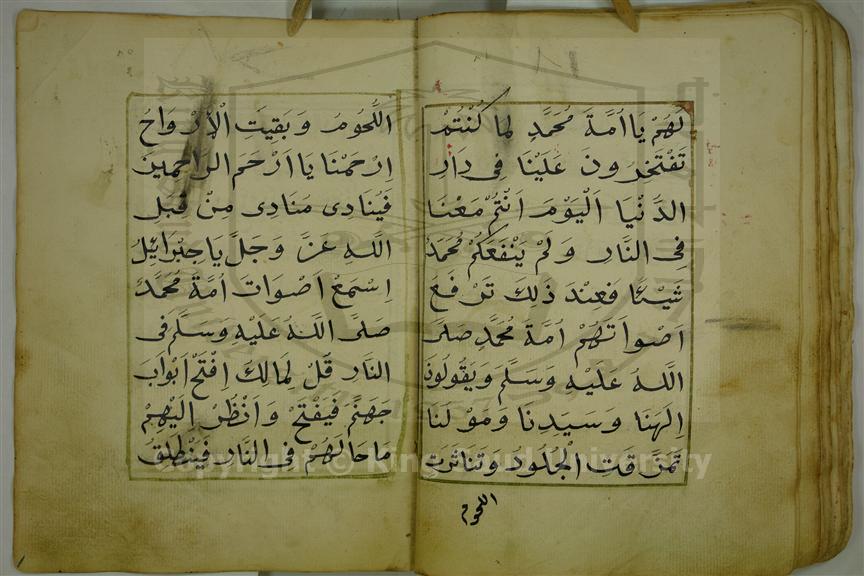 لَهُمْ يَا اُمَّةَ مُحَمَّدٍ لِمَا كُنْتُمْ
تَفْتَخِرُونَ عَلَيْنَا فِي دَارِ
الدُّنْيَا اَلْيَوْمَ اَنْتُمْ مَعَنَا
فِي النَّارِ وَلَمْ يَنْفَعَكُمْ مُحَمَّدْ
شَيْئًا فَعِنْدَ ذٰلِكَ تَرْفَعُ
اَصْوَاتَهُمْ اُمَّةُ مُحَمَّدٍ صَلَّى
اللَّهُ عَلَيْهِ وَسَلَّمَ وَيَقُولُونَ
اِلٰهَنَا وَسَيِّدِنَا وَمَوْلَنَا
تَمَزَّقَتِ الْجُلُودُ وَتَنَاثَرَتِ
اللحوم
اللُّحُومُ وَبَقِيَتِ الْاَرْوَاحُ
اِرْحَمْنَا يَا اَرْحَمَ الرَاحِمِينَ
فَيُنَادِى مُنَادِى مِنْ قِبَلِ
اللَّهِ عَزَّ وَجَلَّ يَا جِبْرَائِيلُ
اِسْمَعْ اَصْوَاتَ اُمَّةَ مُحَمَّدْ
صَلَّى اللَّهُ عَلَيْهِ وَسَلَّمَ فِى
النَّارِ قُلْ لِمَالِكَ اِفْتَحْ اَبْوَابَ
جَهَنَّمَ فَيَفْتَحْ وَانْظُرْ اِلَيْهِمْ
مَا حَالَهُمْ فِى النَّارِ فَيَنْطَلِقُ
Copyright © King Saud University